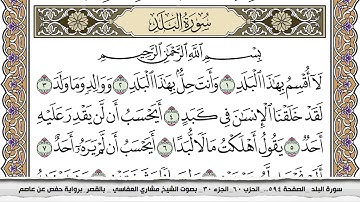 سُورَةُ البَلَدِ
بِسْمِ اللَّهِ الرَّحْمَٰنِ الرَّحِيمِ
لَا أُقْسِمُ بِهَٰذَا الْبَلَدِ ١ وَأَنتَ حِلٌّ بِهَٰذَا الْبَلَدِ ٢ وَوَالِدٍ وَمَا وَلَدَ ٣
لَقَدْ خَلَقْنَا الْإِنسَٰنَ فِي كَبَدٍ ٤ أَيَحْسَبُ أَن لَّن يَقْدِرَ عَلَيْهِ
أَحَدٌ ٥ يَقُولُ أَهْلَكْتُ مَالًا لُّبَدًا ٦ أَيَحْسَبُ أَن لَّمْ يَرَهُ أَحَدٌ ٧
سورة البلد .. الصفحة ٥٩٤ .. الحزب ٦٠ .. الجزء ٣٠ .. بصوت الشيخ مشاري العفاسي .. بالقصر برواية حفص عن عاصم